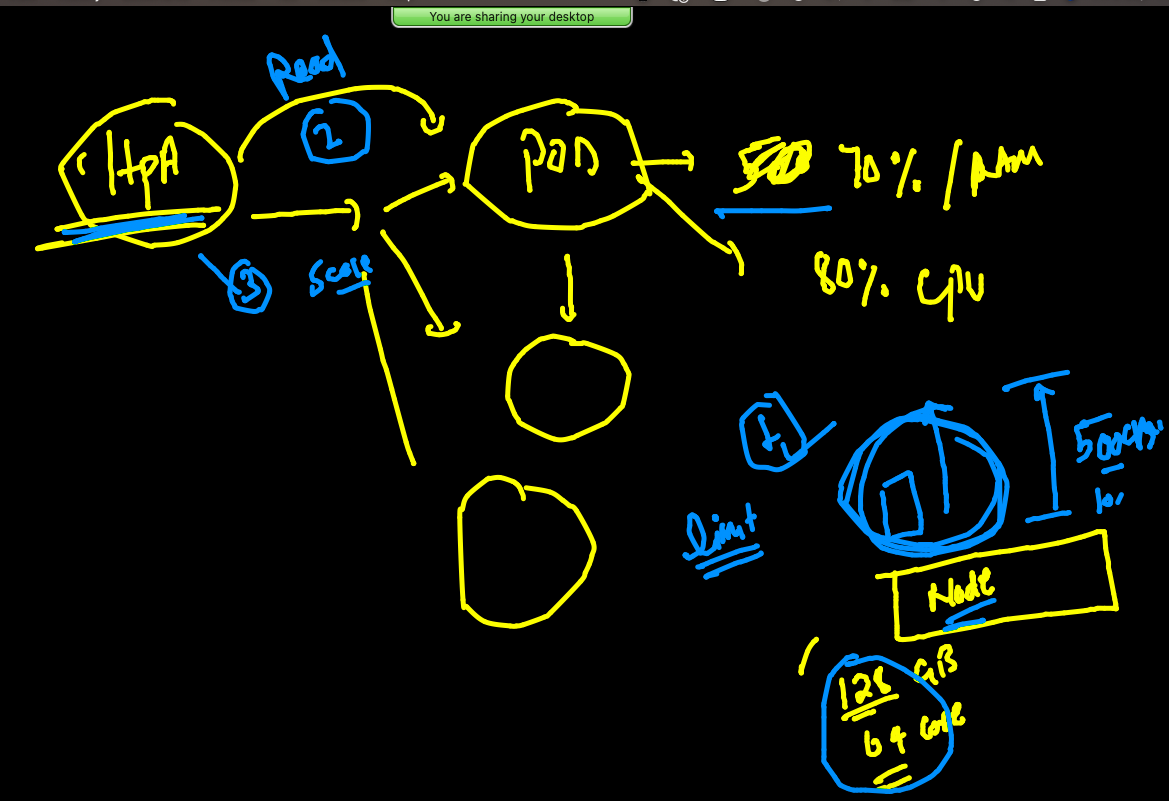 You are sharing your desktop
Read
2
HpA
POD
70% / RAM
80% CPU
3
Scale
1
limit
Node
128 GiB
64 core